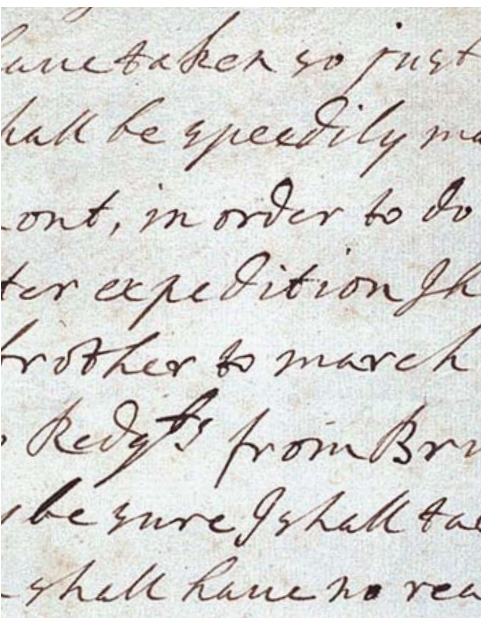 haue taken so just
hall be speedily ma
ont, in order to do
ter expedition J h
brother to march
from Bru
be sure J shall tae
shall haue no rea